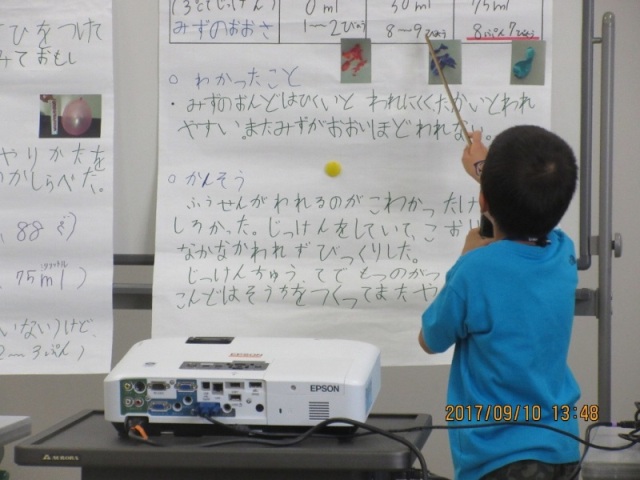 ひをつけて
みておもし
やりかたを
かしらべた。
88ど)
75ml)
いない)けど、
2〜3ぷん)
0ml
30ml
75ml
みずのおおさ
1〜2びょう
8〜9びょう
8ぷん7びょう
○ わかったこと
・みずのおんどはひくいと われにくくたかいとわれ
やすい。またみずがおおいほどわれない。
○ かんそう
ふうせんがわれるのがこわかったけ
しろかった。じっけんをしていて、こおり
なかなかわれずびっくりした。
じっけんちゅう、てでもつのがつ
こんどはそうちをつくってまたや
EPSON
SUBARU
2017/09/10 13:48